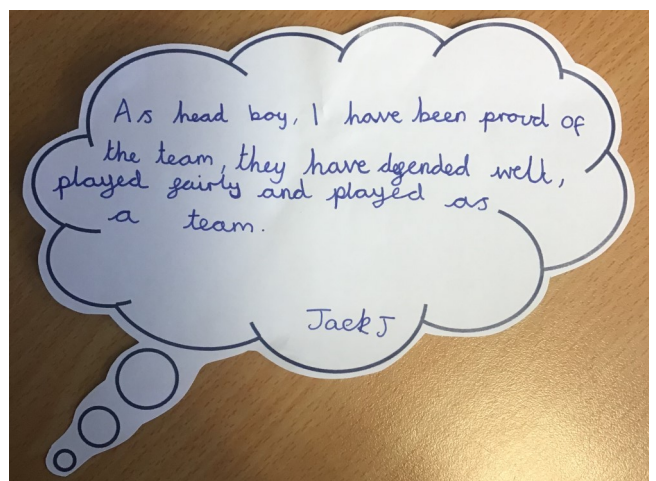 As head boy, I have been proud of
the team, they have defended well,
played fairly and played as
a team.
Jack J